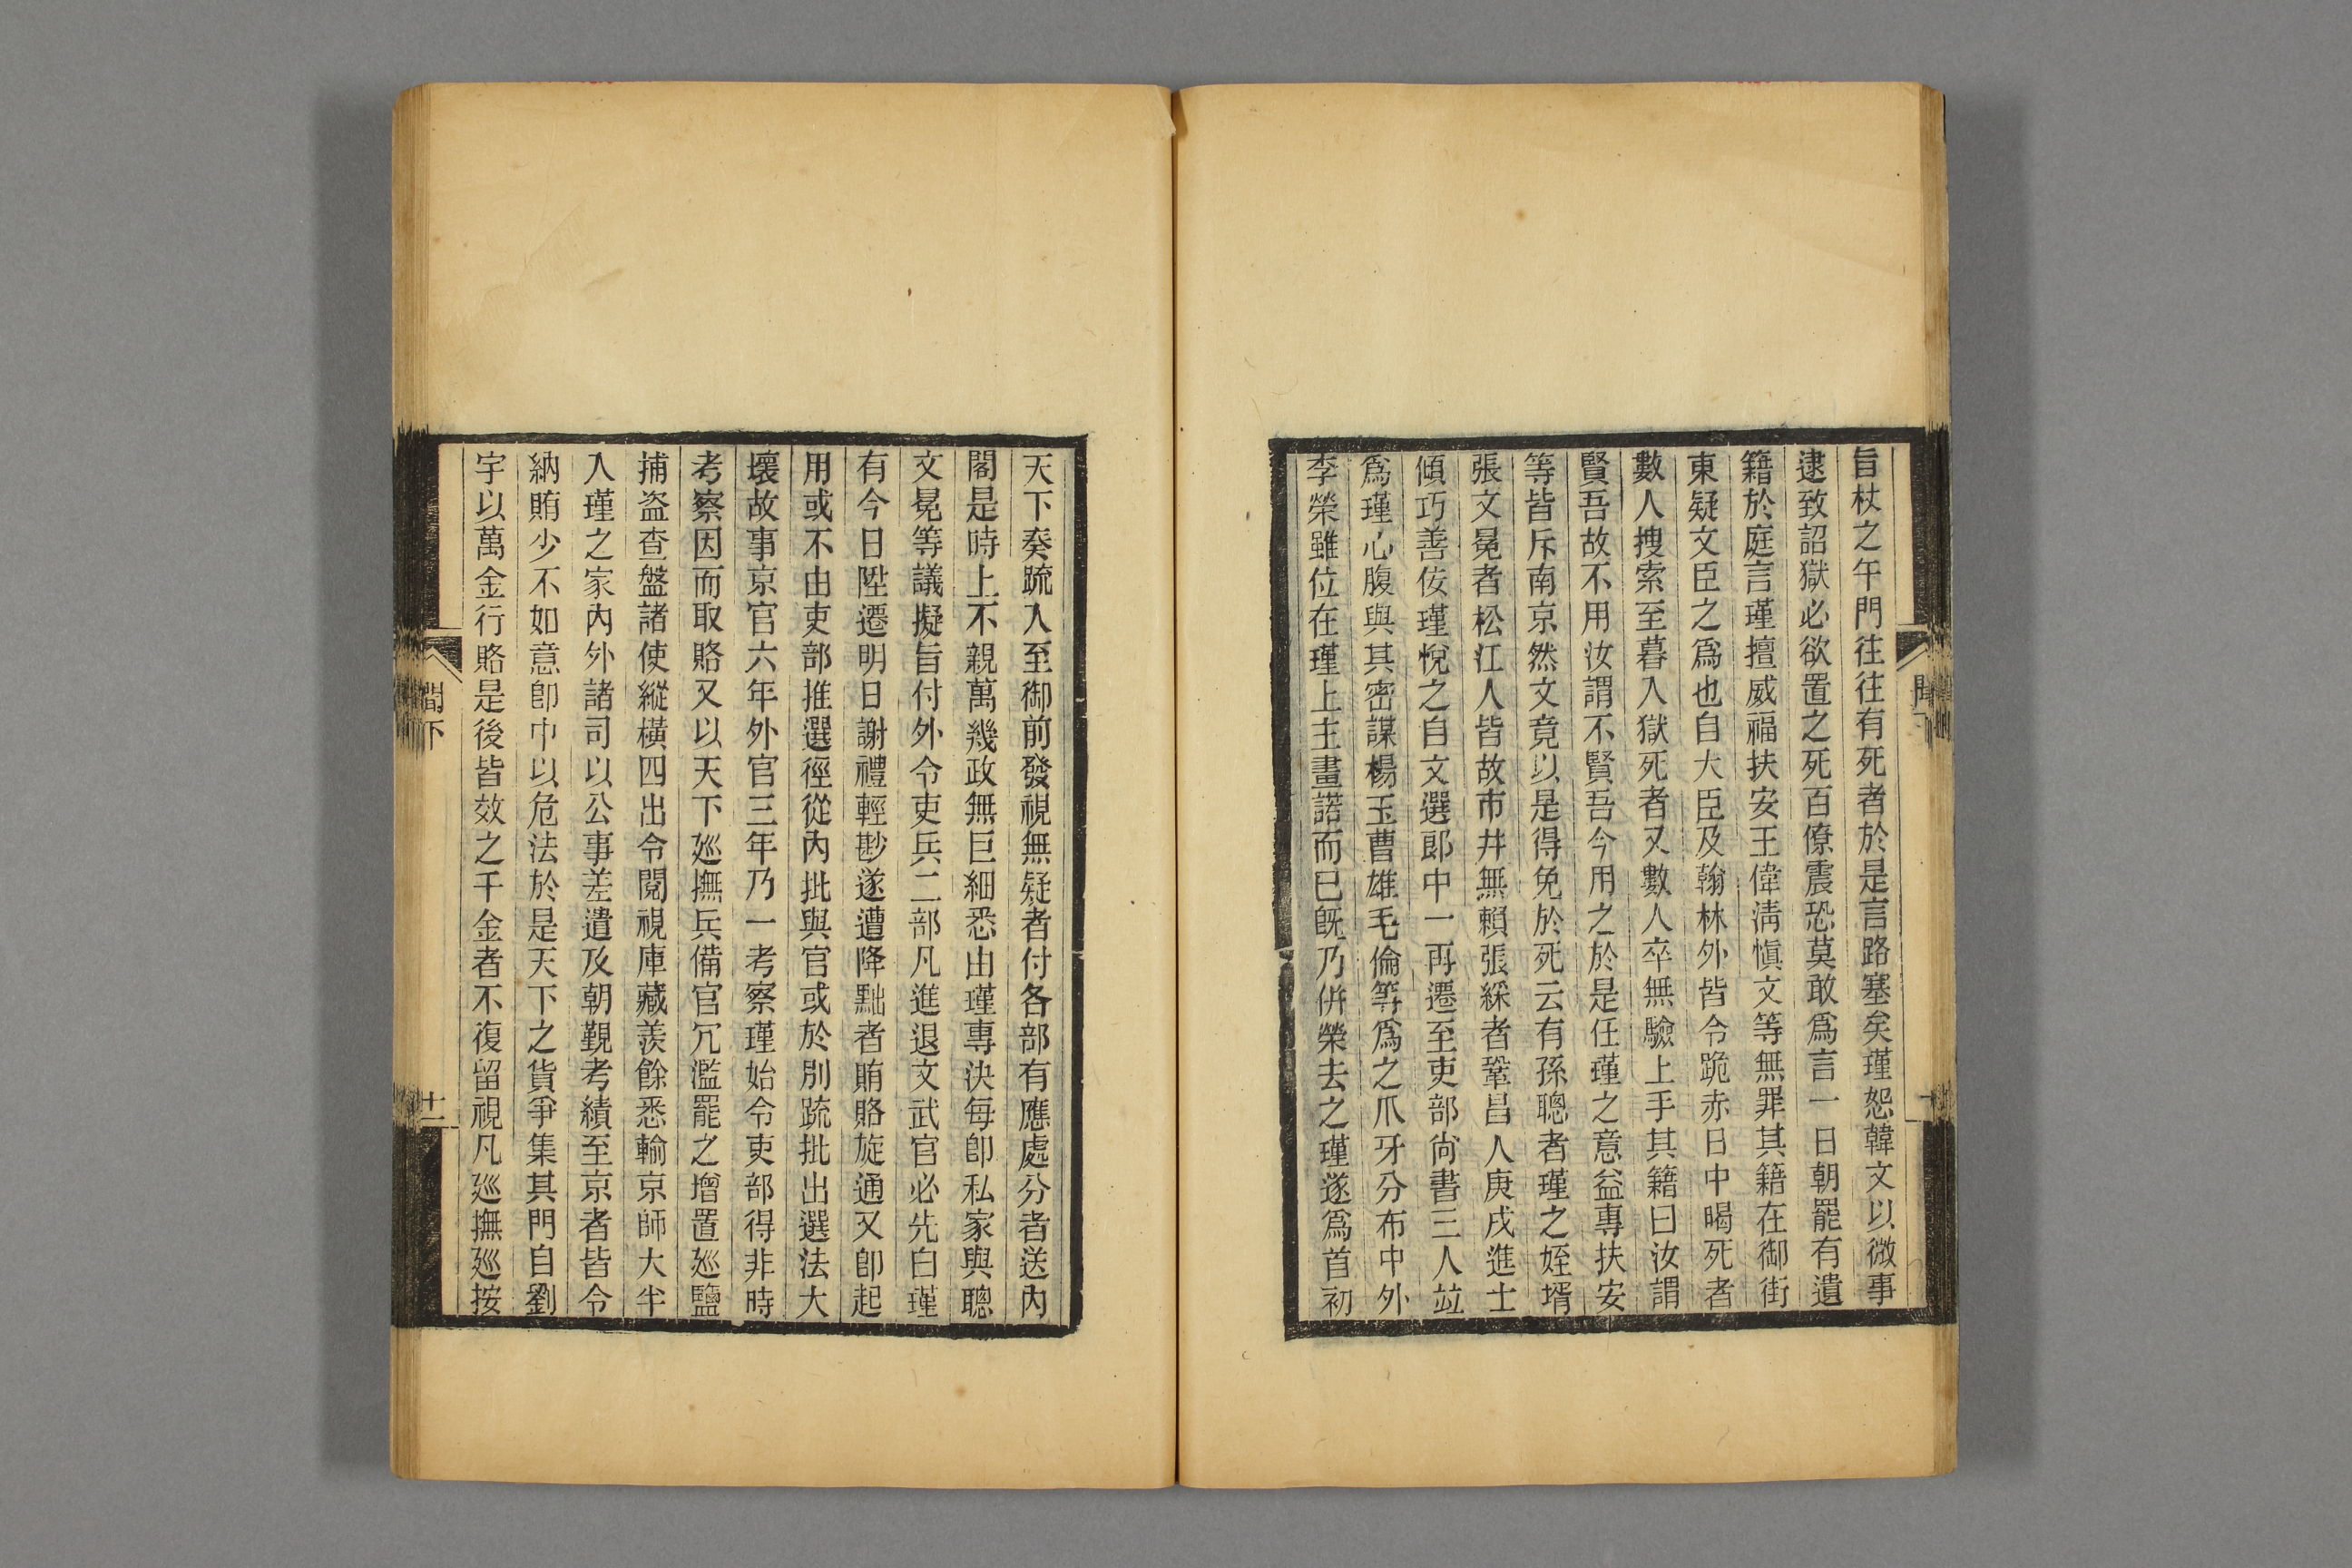 旨杖之午門往往有死者於是言路塞矣瑾恕韓文以微事
逮致詔獄必欲置之死百僚震恐莫敢爲言一日朝罷有遺
籍於庭言瑾擅威福扶安王偉淸愼文等無罪其籍在御街
東疑文臣之爲也自大臣及翰林外皆令跪赤日中暍死者
數人搜索至暮入獄死者又數人卒無驗上手其籍曰汝謂
賢吾故不用汝謂不賢吾今用之於是任瑾之意益專扶安
等皆斥南京然文竟以是得免於死云有孫聰者瑾之姪壻
張文冕者松江人皆故市井無賴張綵者鞏昌人庚戌進士
傾巧善佞瑾悅之自文選郎中一再遷至吏部尙書三人竝
爲瑾心腹與其密謀楊玉曹雄毛倫等爲之爪牙分布中外
李榮雖位在瑾上主畫諾而已旣乃併榮去之瑾遂爲首初
天下奏疏入至御前發視無疑者付各部有應處分者送內
閣是時上不親萬幾政無巨細悉由瑾專決每卽私家與聰
文冕等議擬旨付外令吏兵二部凡進退文武官必先白瑾
有今日陞遷明日謝禮輕尠遂遭降黜者賄賂旋通又卽起
用或不由吏部推選徑從內批與官或於別疏批出選法大
壞故事京官六年外官三年乃一考察瑾始令吏部得非時
考察因而取賂又以天下廵撫兵備官冗濫罷之增置廵鹽
捕盗查盤諸使縱橫四出令閱視庫藏羨餘悉輸京師大半
入瑾之家內外諸司以公事差遣及朝覲考績至京者皆令
納賄少不如意卽中以危法於是天下之貨爭集其門自劉
宇以萬金行賂是後皆效之千金者不復留視凡廵撫廵按
聞下
十一